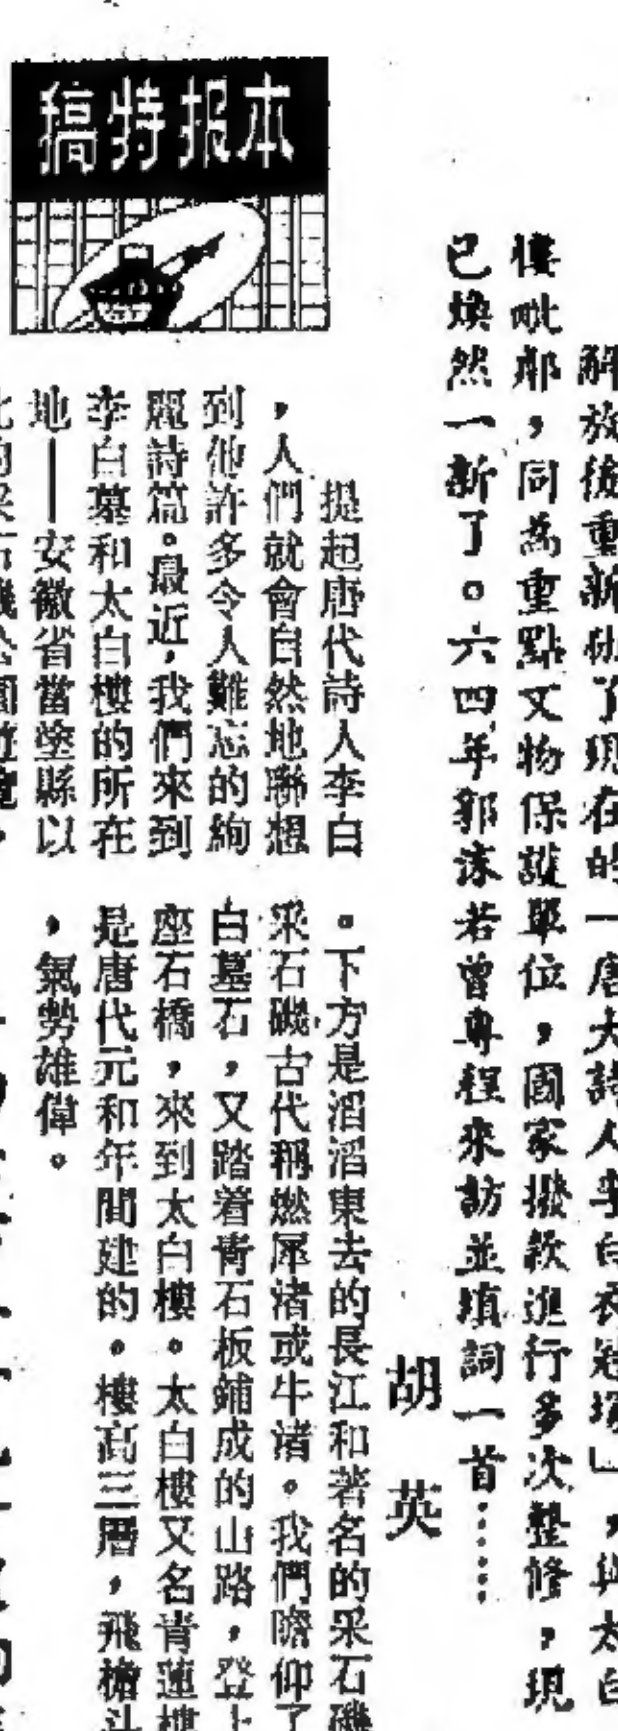 本报特稿
解放後重新
了現在的一唐大詩人李白衣冠塚」,與太白
樓毗鄰,同為重點文物保護單位,國家撥款進行多次整修,現
已煥然一新了。六四年郭沫若曾專程來訪並填詞一首⋯⋯
胡英
提起唐代詩人李白
,人們就會自然地聯想
到他許多令人難忘的絢
麗詩篇。最近,我們來到
李白墓和太白樓的所在
地——安徽省當塗縣以
。下方是滔滔東去的長江和著名的采石磯
采石磯古代稱燃犀渚或牛渚。我們瞻仰了
白墓石,又踏着青石板鋪成的山路,登上
座石橋,來到太白樓。太白樓又名青蓮樓
是唐代元和年間建的。樓高三層,飛檐斗
,氣勢雄偉。